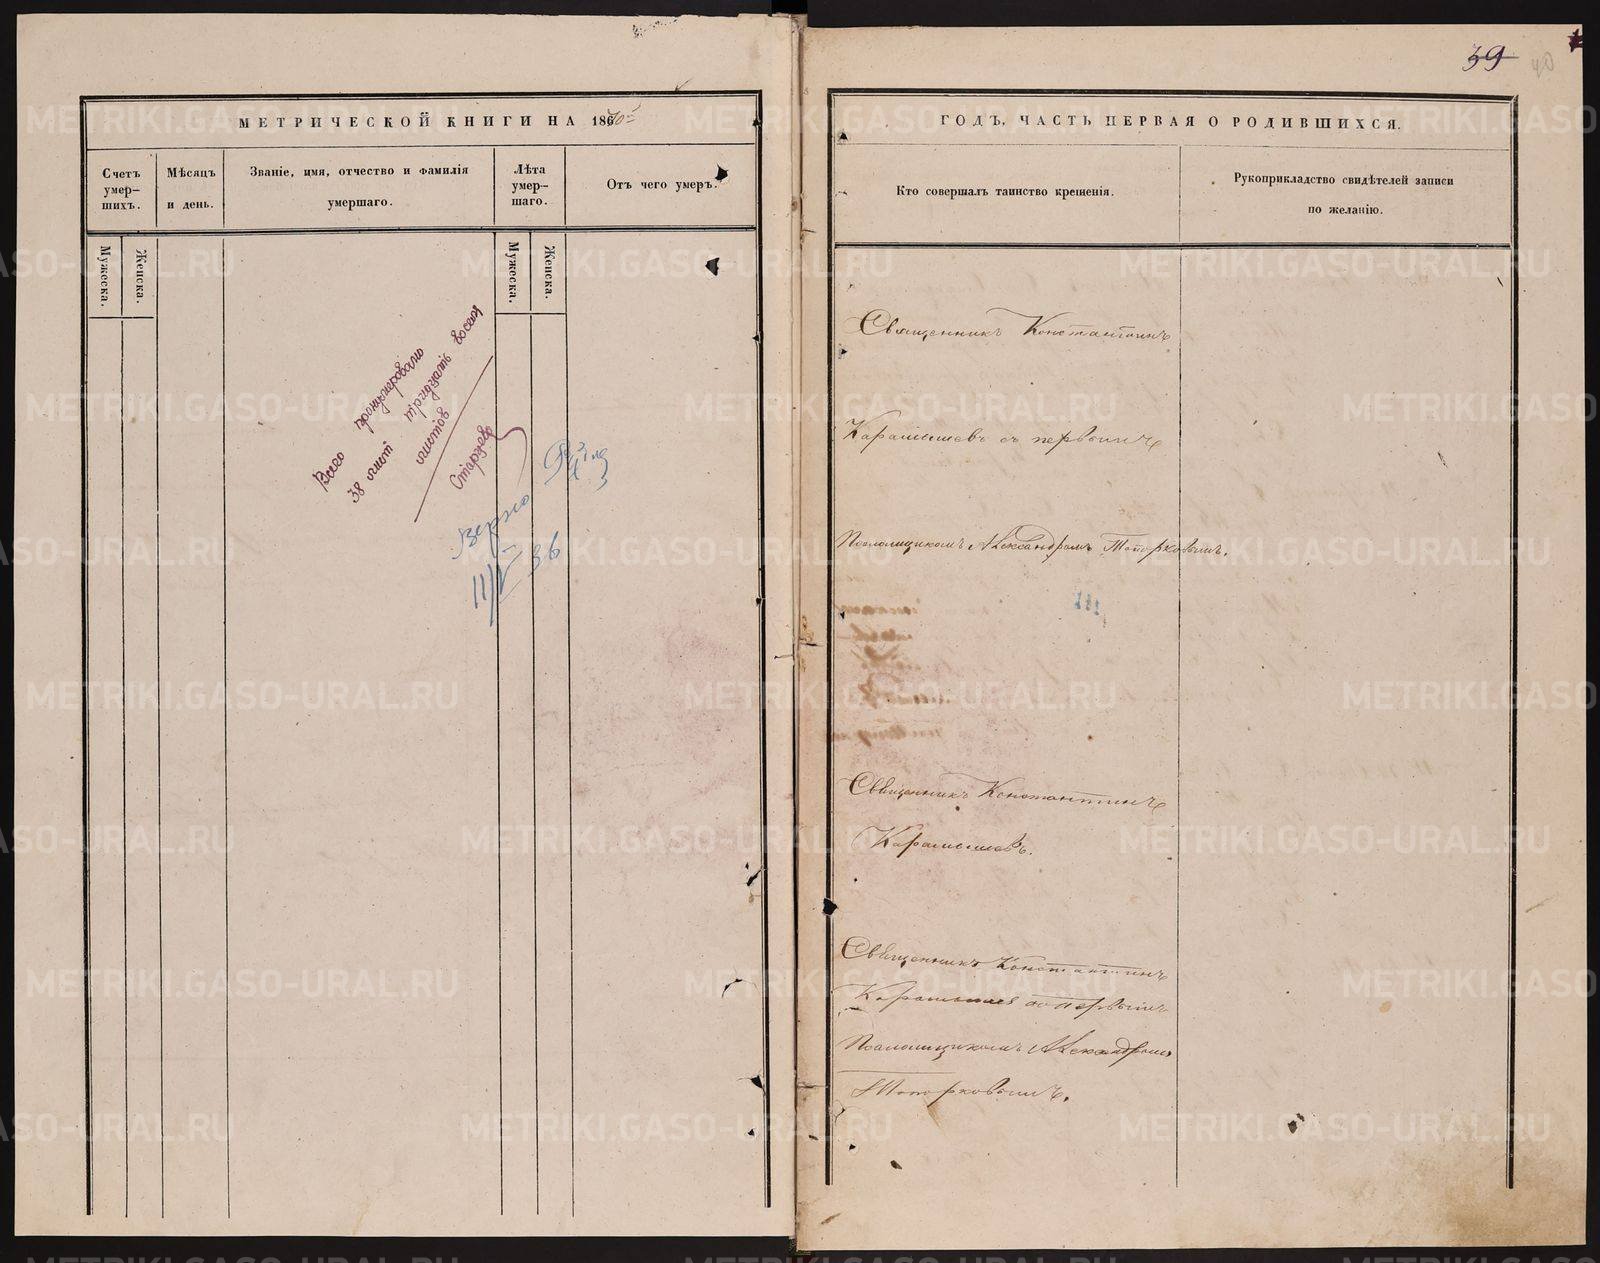 МЕТРИЧЕСКОЙ КНИГИ НА 186
Счетъ умер— шихъ.
Мѣсяцъ и день.
Званіе, имя, отчество и фамилія умершаго.
Лѣта умер— шаго.
Отъ чего умеръ.
Мужеска.
Женска.
Мужеска.
Женска.
Всего пронумеровано
38 лист тридцать восем
листов
Старцев
Верно
11/V 36
39
40
ГОДЪ, ЧАСТЬ ПЕРВАЯ О РОДИВШИХСЯ.
Кто совершалъ таинство крещенія.
Рукоприкладство свидѣтелей записи
по желанію.
Священникъ Константинъ
Карамышевъ съ первымъ
Псаломщикомъ Александромъ Топорковымъ.
Священникъ Константинъ
Карамышевъ.
Священникъ Константинъ
Карамышев со первымъ
Псаломщикомъ Александромъ
Топорковымъ.
METRIKI.GASO-URAL.RU